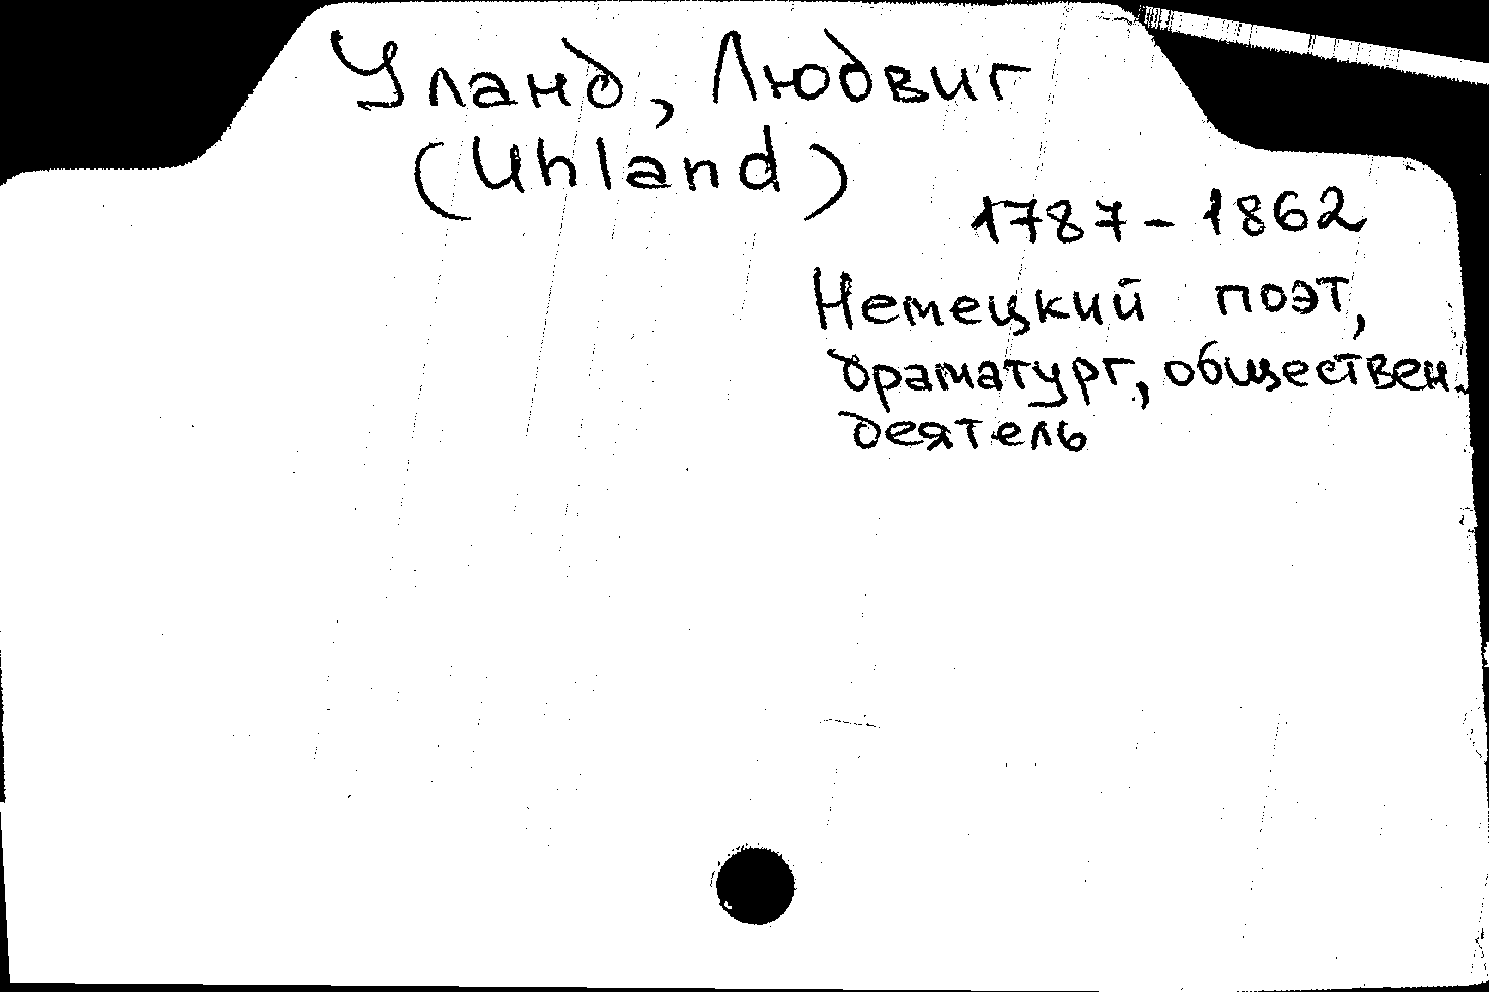 Уланд, Людвиг
(Uhland)
1787 - 1862
Немецкий поэт,
драматург, обществен.
деятель